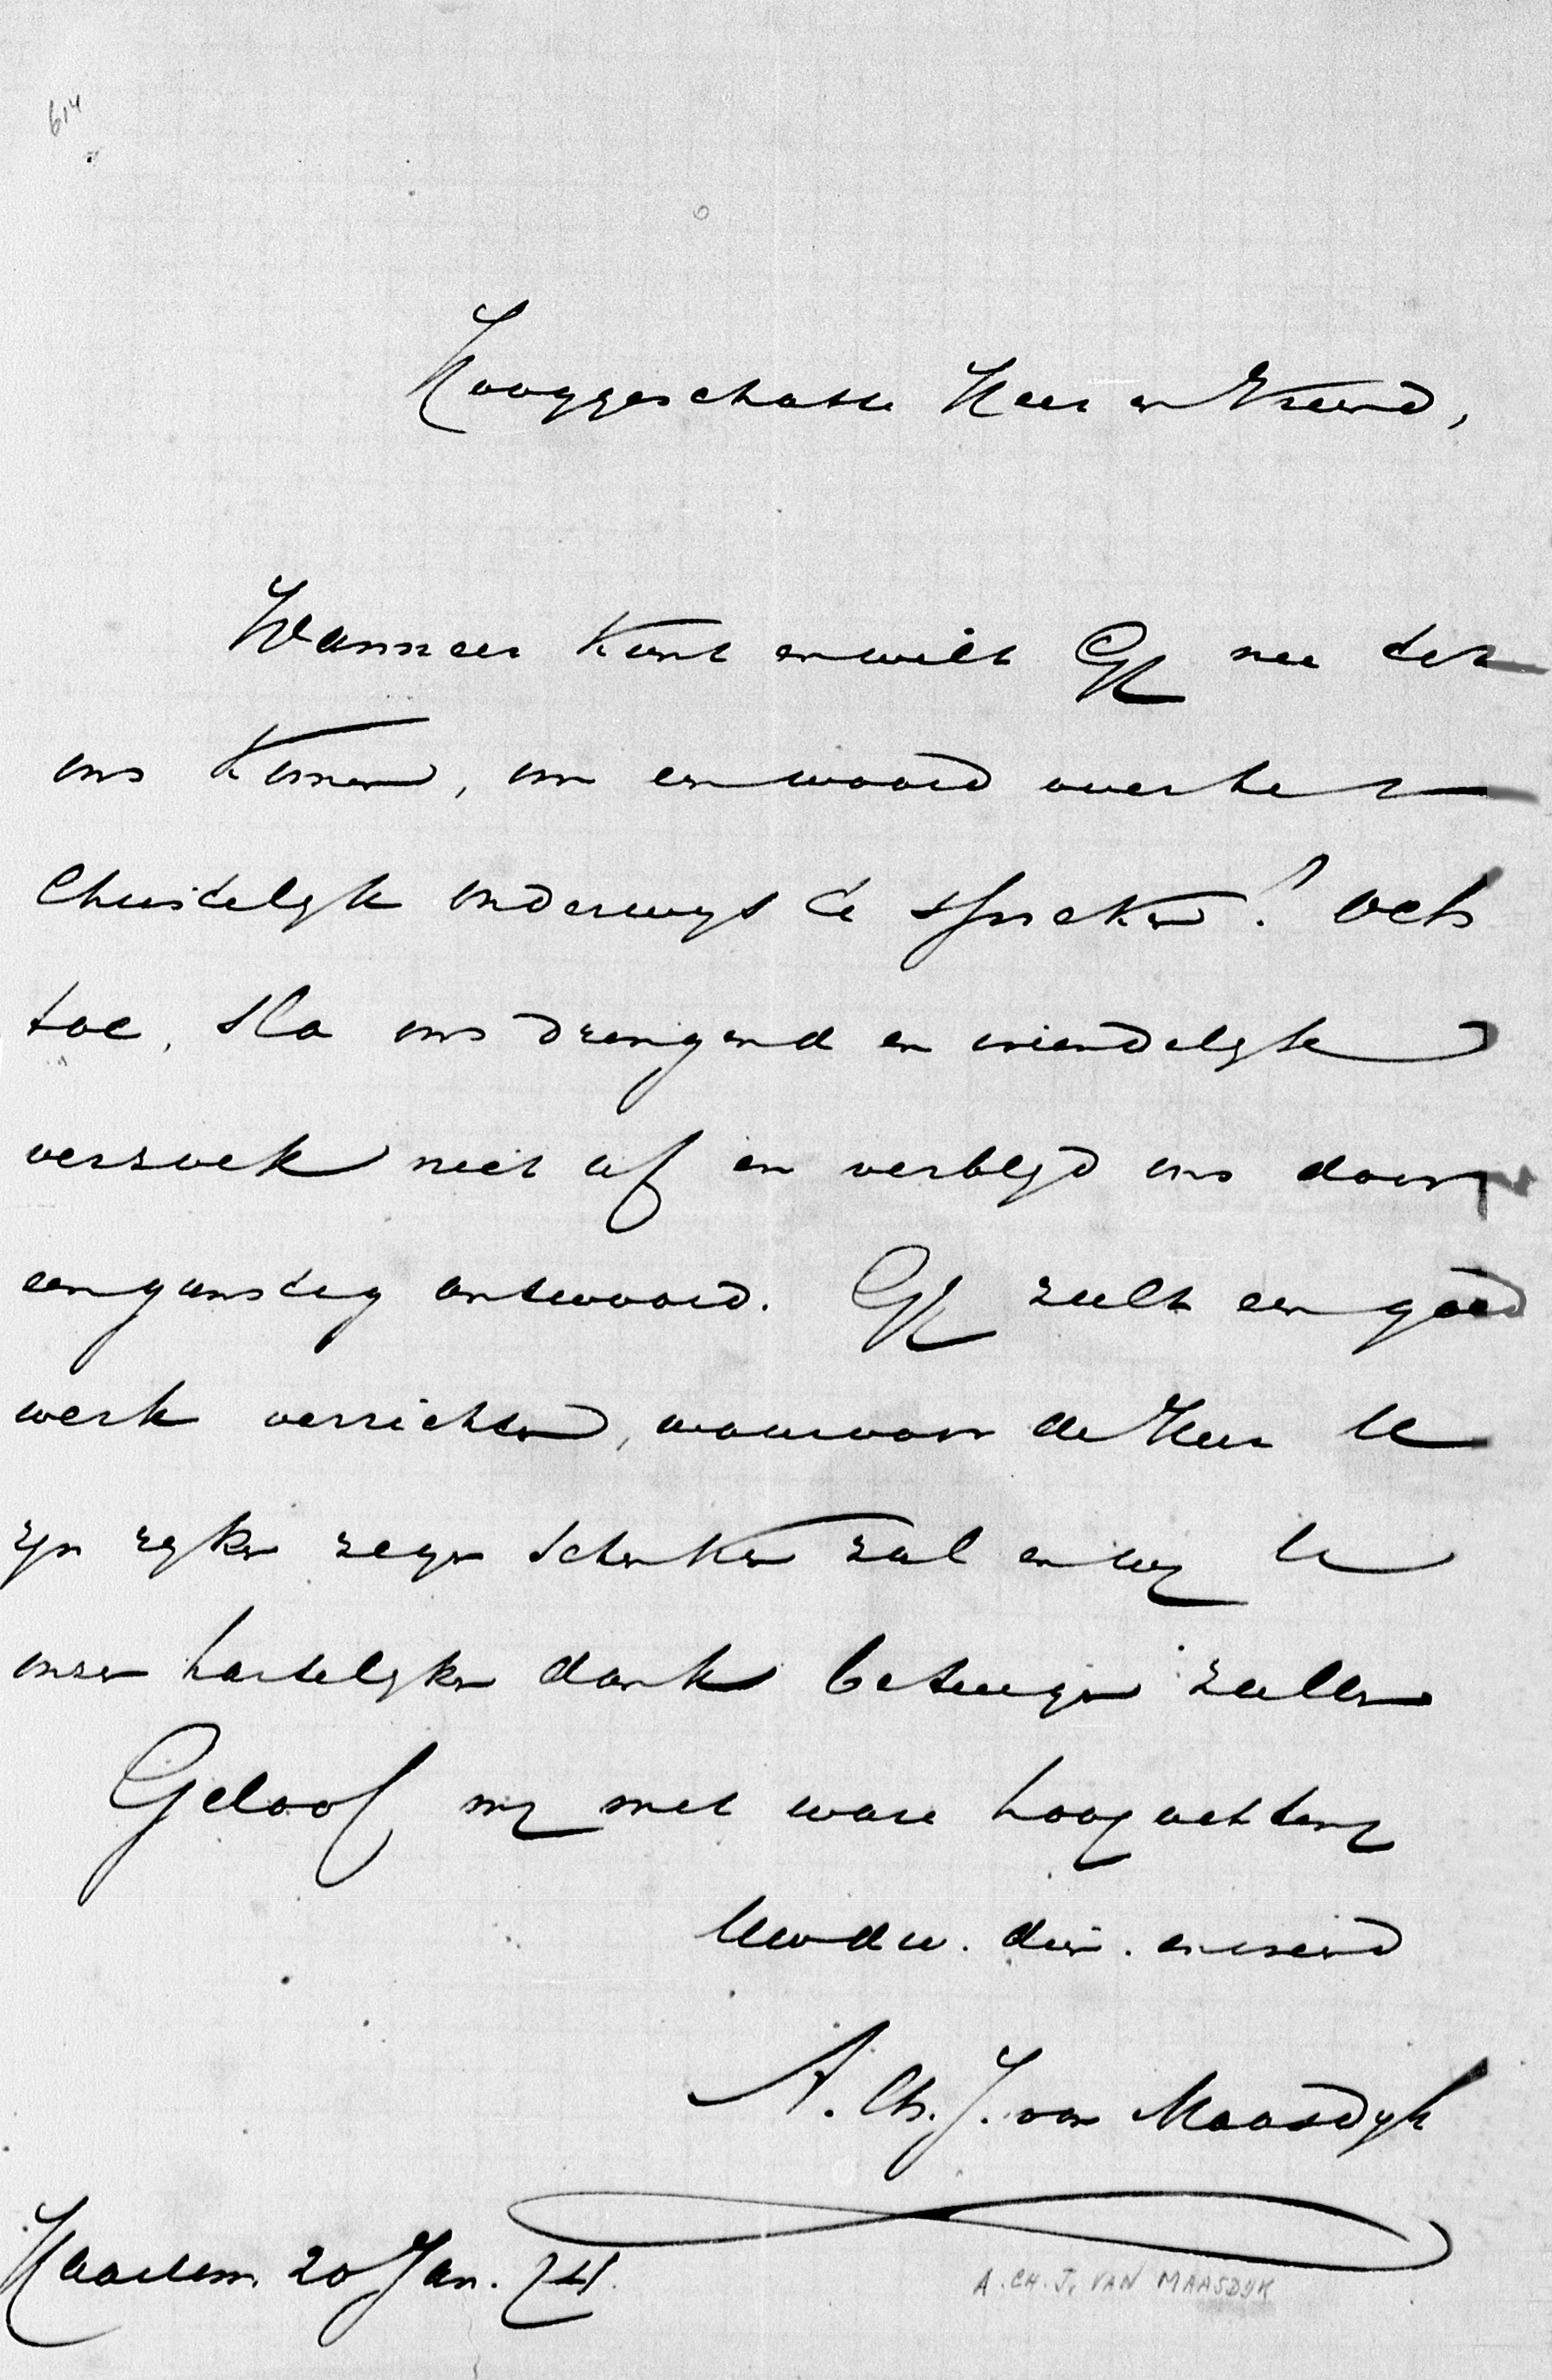 614
Hooggeschatte Heer en Vriend,
Wanneer kunt en wilt Gij nu tot
ons komen, om een woord over het
Christelijk onderwijs te spreken? Och
toe, sla ons dringend en vriendelijk
verzoek niet af en verblijd ons door
een gunstig antwoord. Gij zult een goed
werk verrichten, waarvoor de Heer U
zijn rijken zegen schenken zal en wij U
onzen hartelijken dank betuigen zullen
Geloof mij met ware hoogachting
Uwdw. dien. en vriend
A. Ch. J. van Maasdijk
Haarlem 20 Jan. 74.
A. CH. J. VAN MAASDIJK